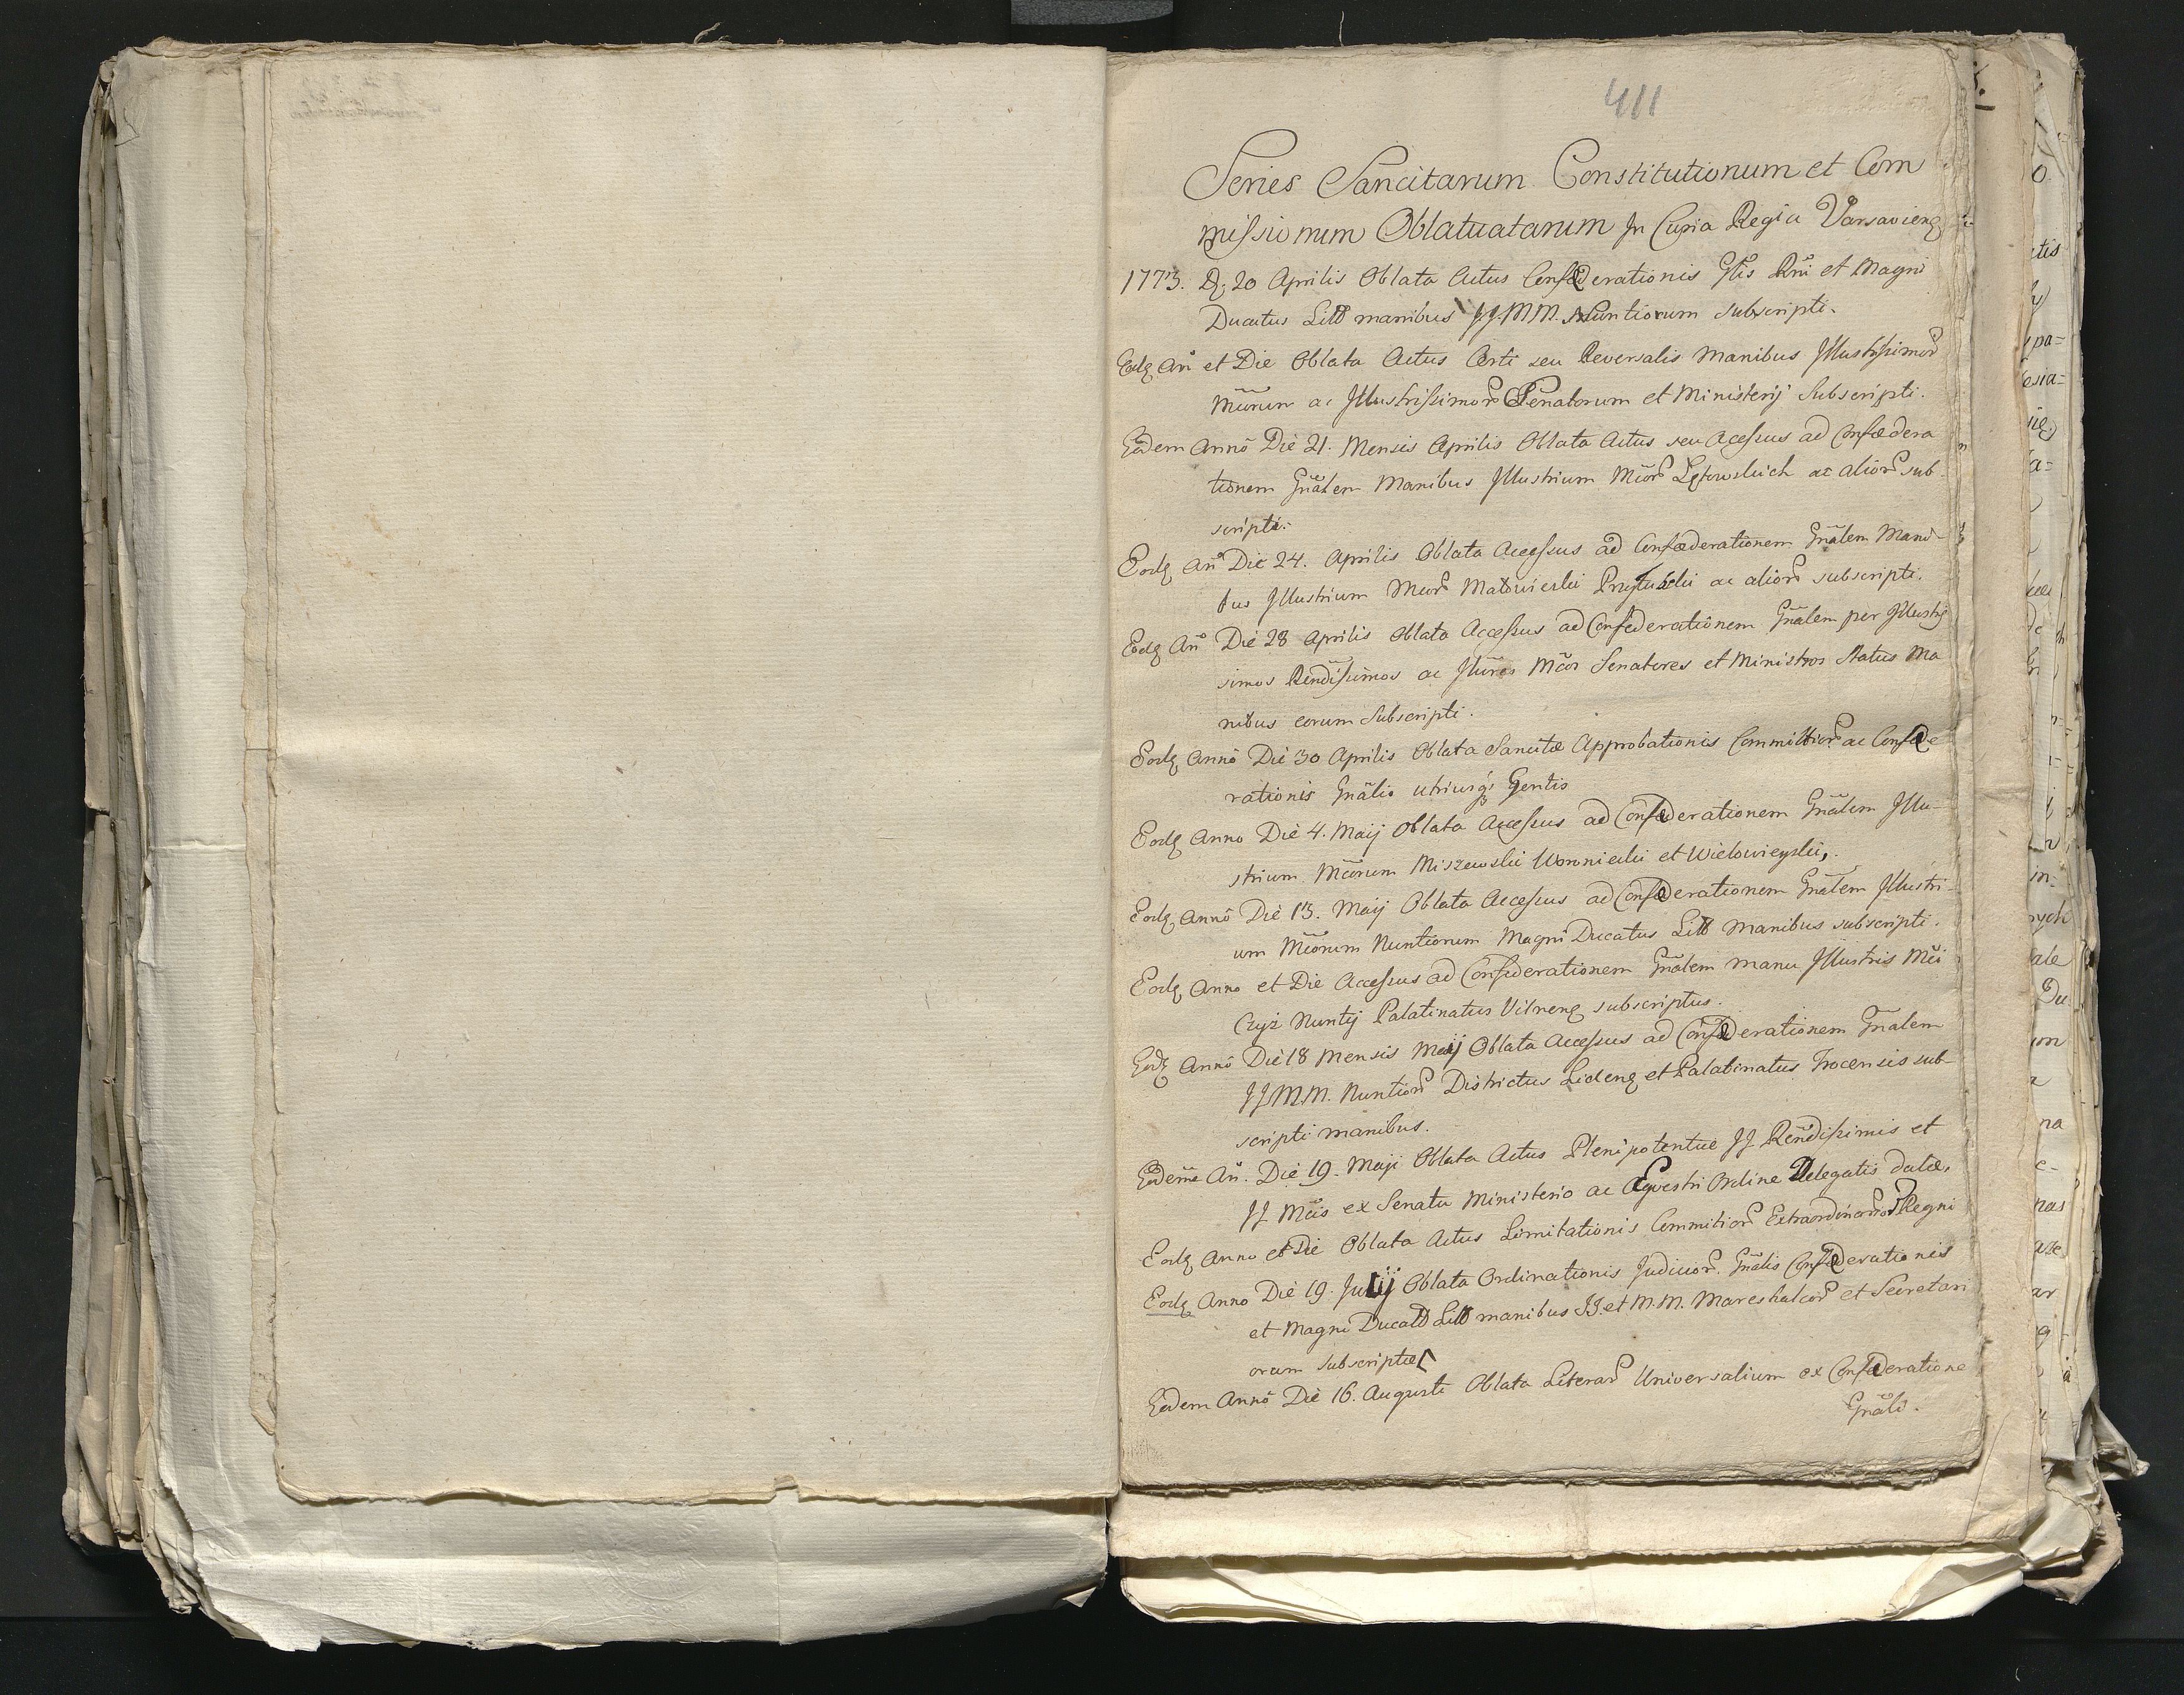 411
Series Sancitarum Constitutionum et Com
missionum Oblatuatarum In Curia Regia Varsavieng
1773. D. 20 Aprilis Oblata Actus Confæderationis Glis Rni et Magni
Ducatus Litt manibus JJ. MM. Nuntiorum subscripti.
Eodq An et Die Oblata Actus seu Reversalis Manibus Illustrissimor
Mcorum ac Illustrissimor Senatorum et Ministerij Subscripti.
Eodem Anno Die 21. Mensis Aprilis Oblata Actus seu Acessus ad Confædera
tionem Gnalem Manibus Illustrium Mcor Lętowskich ac alior sub
scripti.
Eodq An Die 24. Aprilis Oblata Accessus ad Confæderationem Gnalem Mani-
bus Illustrium Mcor ac alior subscripti.
Eodq An Die 28 Aprilis Oblata Accessus ad Confæderationem Gnalem per Illustris
simos Rendissimos ac Illres Mcos Senatores et Ministros Status Ma
nibus eorum Subscripti.
Eodq Anno Die 30 Aprilis Oblata Sancitæ Approbationis Commitior ac Confæde
rationis Gnalis utriusq Gentis
Eodq Anno Die 4. Maij Oblata Accessus ad Confæderationem Gnalem Illu-
strium Mcorum Miszewskii Woronieckii et Wielowieyskii.
Eodq Anno Die 13. Maij Oblata Accessus ad Confæderationem Gnalem Illustri-
um Mcorum Nuntiorum Magni Ducatus Litt Manibus subscripti.
Eodq Anno et Die Accessus ad Confæderationem Gnalem manu Illustris Mci
Czyż Nuntij Palatinatus Vilneng subscriptus.
Eodq Anno Die 18 Mensis Maij Oblata Accessus ad Confæderationem Gnalem
JJ MM. Nuntior Districtus Lideng et Palatinatus Trocensis sub-
scripti manibus.
Eodem An. Die 19. Maji Oblata Actus Plenipotentiæ JJ Rendissimis et
JJ Mcis ex Senatu Ministerio ac Equestri Ordine Delegatis datæ.
Eodq Anno et Die Oblata Actus Limitationis Commitior Extraordinarior Regni
Eodq Anno Die 19. Julij Oblata Ordinationis Judicior. Gnalis Confæderationis
et Magni Ducatt Litt manibus JJ. et M. M. Mareshalcor et Secretari
orum subscriptæ
Eodem Anno Die 16. Augusti Oblata Literar Universalium ex Confæderatione
Gnali.